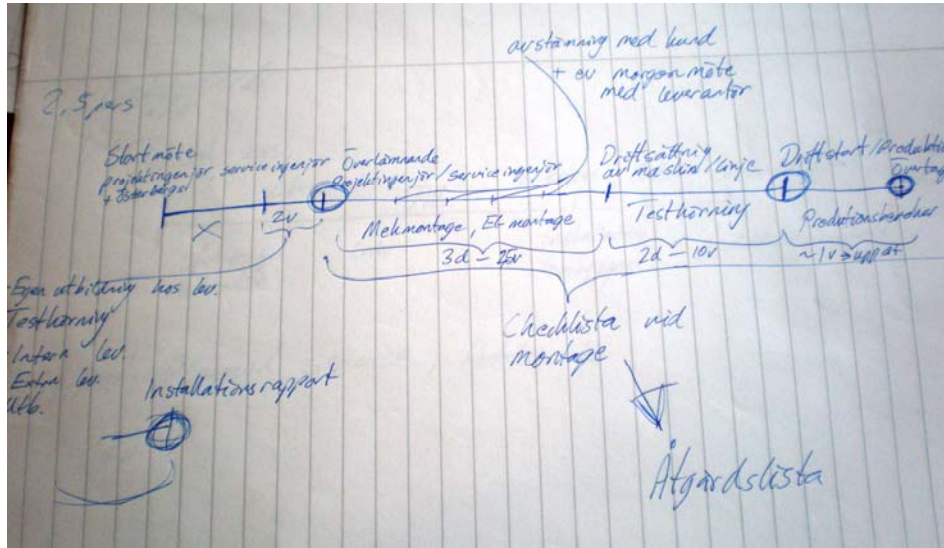 avstämning med kund
+ ev morgonmöte
med leverantör
2,5 pers
Startmöte
projektingenjör serviceingenjör
Överlämnande
projektingenjör/serviceingenjör
Driftsättning
av maskin/linje
Driftstart/Produktion
Övertag
X
2v
Mekmontage, El-montage
Testkörning
3d – 25v
2d – 10v
~1v → uppåt
Egen utbildning hos lev.
Testkörning
Intern lev.
Extern lev.
Utb.
Checklista vid
montage
Installationsrapport
Åtgärdslista